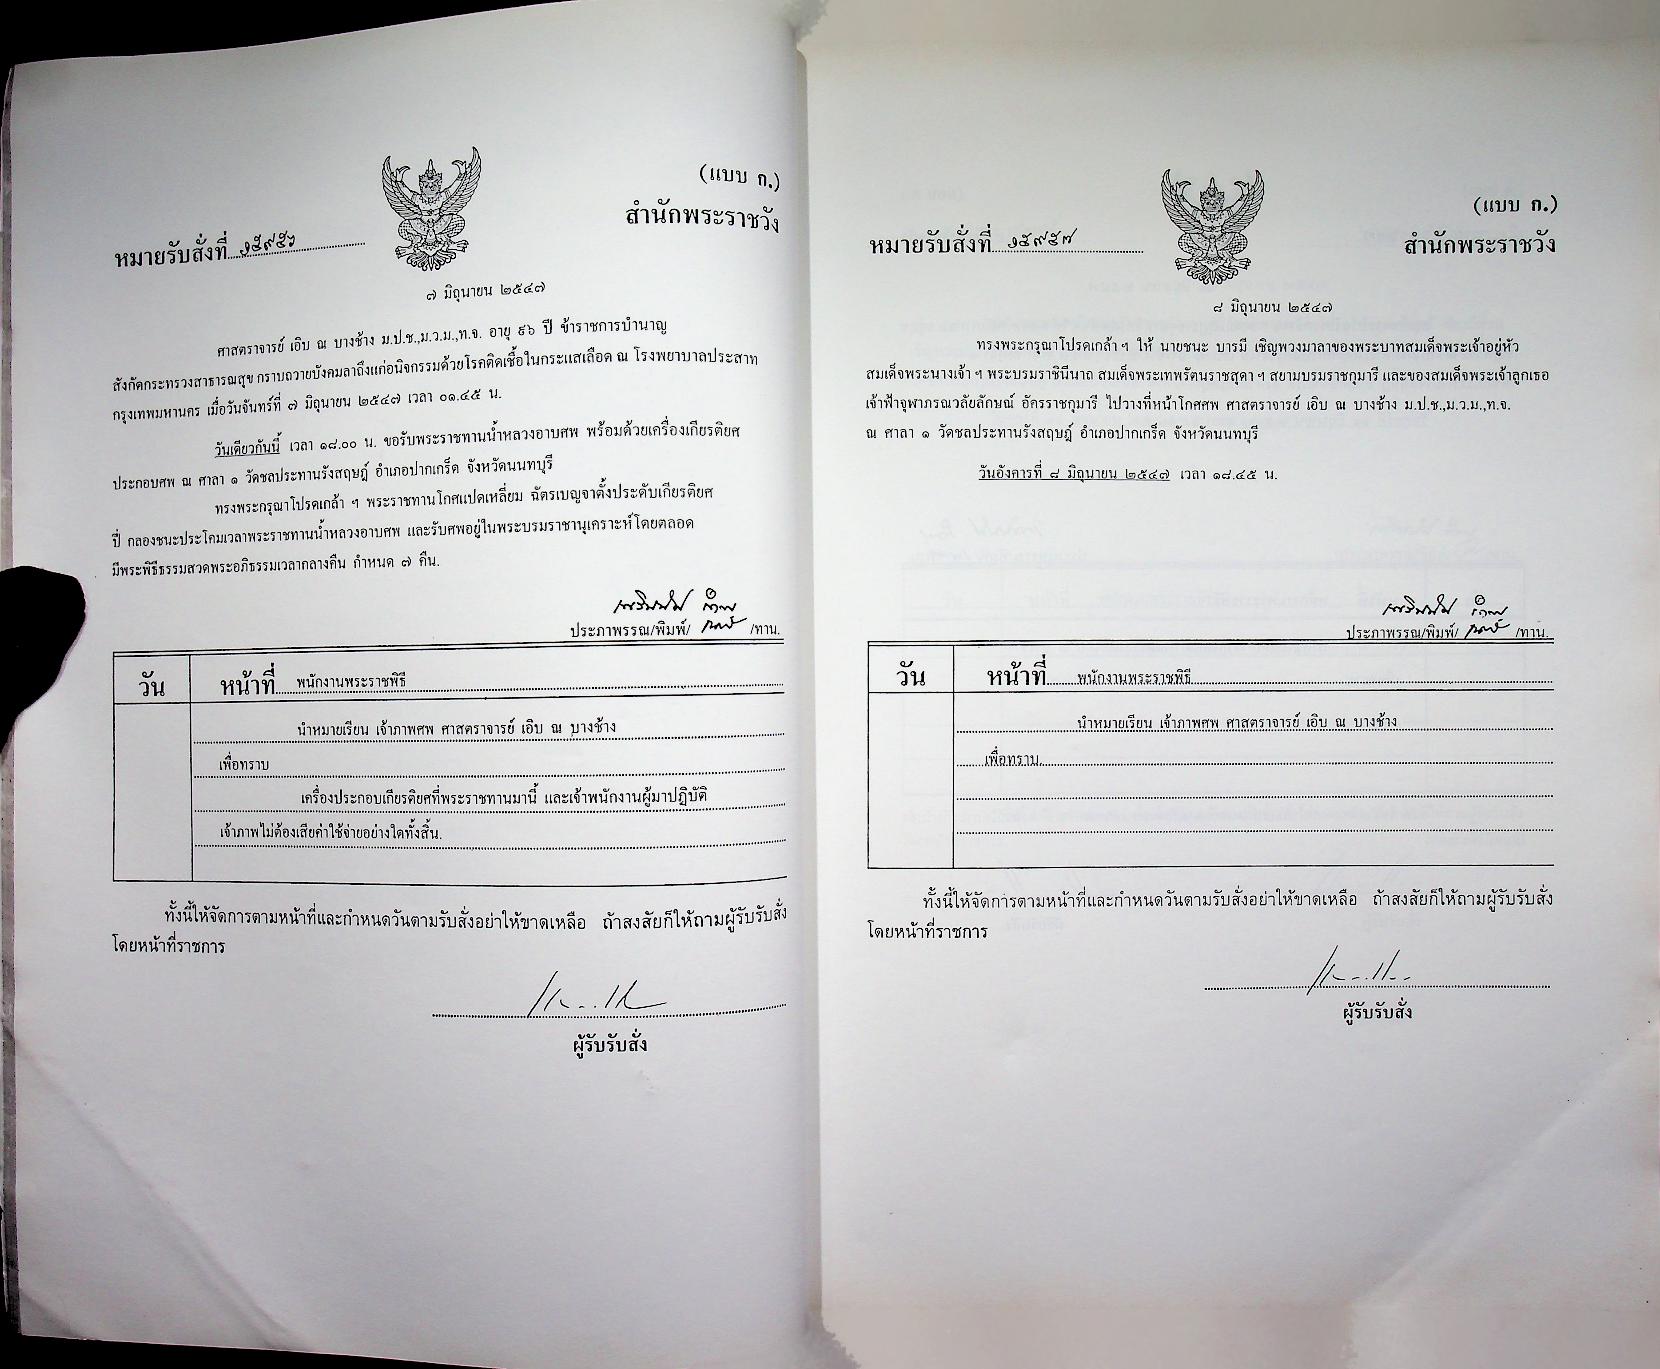 (แบบ ก.)
สำนักพระราชวัง
หมายรับสั่งที่ ๑๕๙๕๖
๗ มิถุนายน ๒๕๔๗
ศาสตราจารย์ เอิบ ณ บางช้าง ม.ป.ช.,ม.ว.ม.,ท.จ. อายุ ๙๖ ปี ข้าราชการบำนาญ
สังกัดกระทรวงสาธารณสุข กราบถวายบังคมลาถึงแก่อนิจกรรมด้วยโรคติดเชื้อในกระแสเลือด ณ โรงพยาบาลประสาท
กรุงเทพมหานคร เมื่อวันจันทร์ที่ ๗ มิถุนายน ๒๕๔๗ เวลา ๐๑.๔๕ น.
วันเดียวกันนี้ เวลา ๑๘.๐๐ น. ขอรับพระราชทานน้ำหลวงอาบศพ พร้อมด้วยเครื่องเกียรติยศ
ประกอบศพ ณ ศาลา ๑ วัดชลประทานรังสฤษฎ์ อำเภอปากเกร็ด จังหวัดนนทบุรี
ทรงพระกรุณาโปรดเกล้า ฯ พระราชทานโกศแปดเหลี่ยม ฉัตรเบญจาตั้งประดับเกียรติยศ
ปี่ กลองชนะประโคมเวลาพระราชทานน้ำหลวงอาบศพ และรับศพอยู่ในพระบรมราชานุเคราะห์โดยตลอด
มีพระพิธีธรรมสวดพระอภิธรรมเวลากลางคืน กำหนด ๗ คืน.
ประภาพรรณ/พิมพ์/ /ทาน.
วัน หน้าที่ พนักงานพระราชพิธี
นำหมายเรียน เจ้าภาพศพ ศาสตราจารย์ เอิบ ณ บางช้าง
เพื่อทราบ
เครื่องประกอบเกียรติยศที่พระราชทานมานี้ และเจ้าพนักงานผู้มาปฏิบัติ
เจ้าภาพไม่ต้องเสียค่าใช้จ่ายอย่างใดทั้งสิ้น.
ทั้งนี้ให้จัดการตามหน้าที่และกำหนดวันตามรับสั่งอย่าให้ขาดเหลือ ถ้าสงสัยก็ให้ถามผู้รับรับสั่ง
โดยหน้าที่ราชการ
ผู้รับรับสั่ง
(แบบ ก.)
สำนักพระราชวัง
หมายรับสั่งที่ ๑๕๙๕๗
๘ มิถุนายน ๒๕๔๗
ทรงพระกรุณาโปรดเกล้า ฯ ให้ นายชนะ บารมี เชิญพวงมาลาของพระบาทสมเด็จพระเจ้าอยู่หัว
สมเด็จพระนางเจ้า ฯ พระบรมราชินีนาถ สมเด็จพระเทพรัตนราชสุดา ฯ สยามบรมราชกุมารี และของสมเด็จพระเจ้าลูกเธอ
เจ้าฟ้าจุฬาภรณวลัยลักษณ์ อัครราชกุมารี ไปวางที่หน้าโกศศพ ศาสตราจารย์ เอิบ ณ บางช้าง ม.ป.ช.,ม.ว.ม.,ท.จ.
ณ ศาลา ๑ วัดชลประทานรังสฤษฎ์ อำเภอปากเกร็ด จังหวัดนนทบุรี
วันอังคารที่ ๘ มิถุนายน ๒๕๔๗ เวลา ๑๘.๔๕ น.
ประภาพรรณ/พิมพ์/ /ทาน.
วัน หน้าที่ พนักงานพระราชพิธี
นำหมายเรียน เจ้าภาพศพ ศาสตราจารย์ เอิบ ณ บางช้าง
เพื่อทราบ.
ทั้งนี้ให้จัดการตามหน้าที่และกำหนดวันตามรับสั่งอย่าให้ขาดเหลือ ถ้าสงสัยก็ให้ถามผู้รับรับสั่ง
โดยหน้าที่ราชการ
ผู้รับรับสั่ง